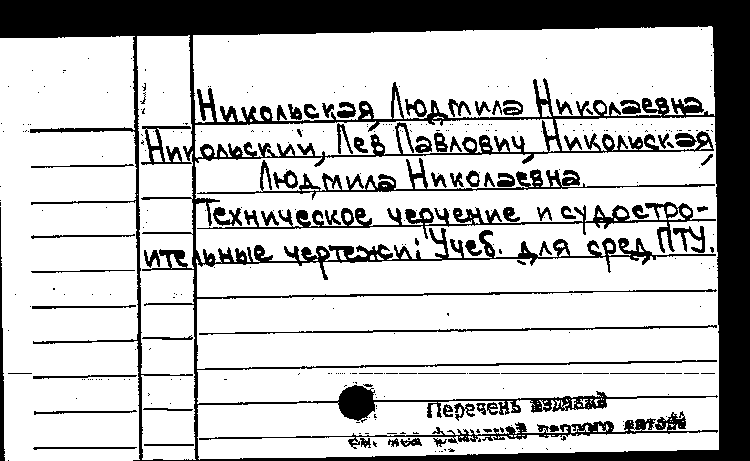 Никольская, Людмила Николаевна.
Никольский, Лев Павлович, Никольская,
Людмила Николаевна.
Техническое черчение и судостро-
ительные чертежи: Учеб. для сред. ПТУ.
Перечень изданий
см. под фамилией первого автора